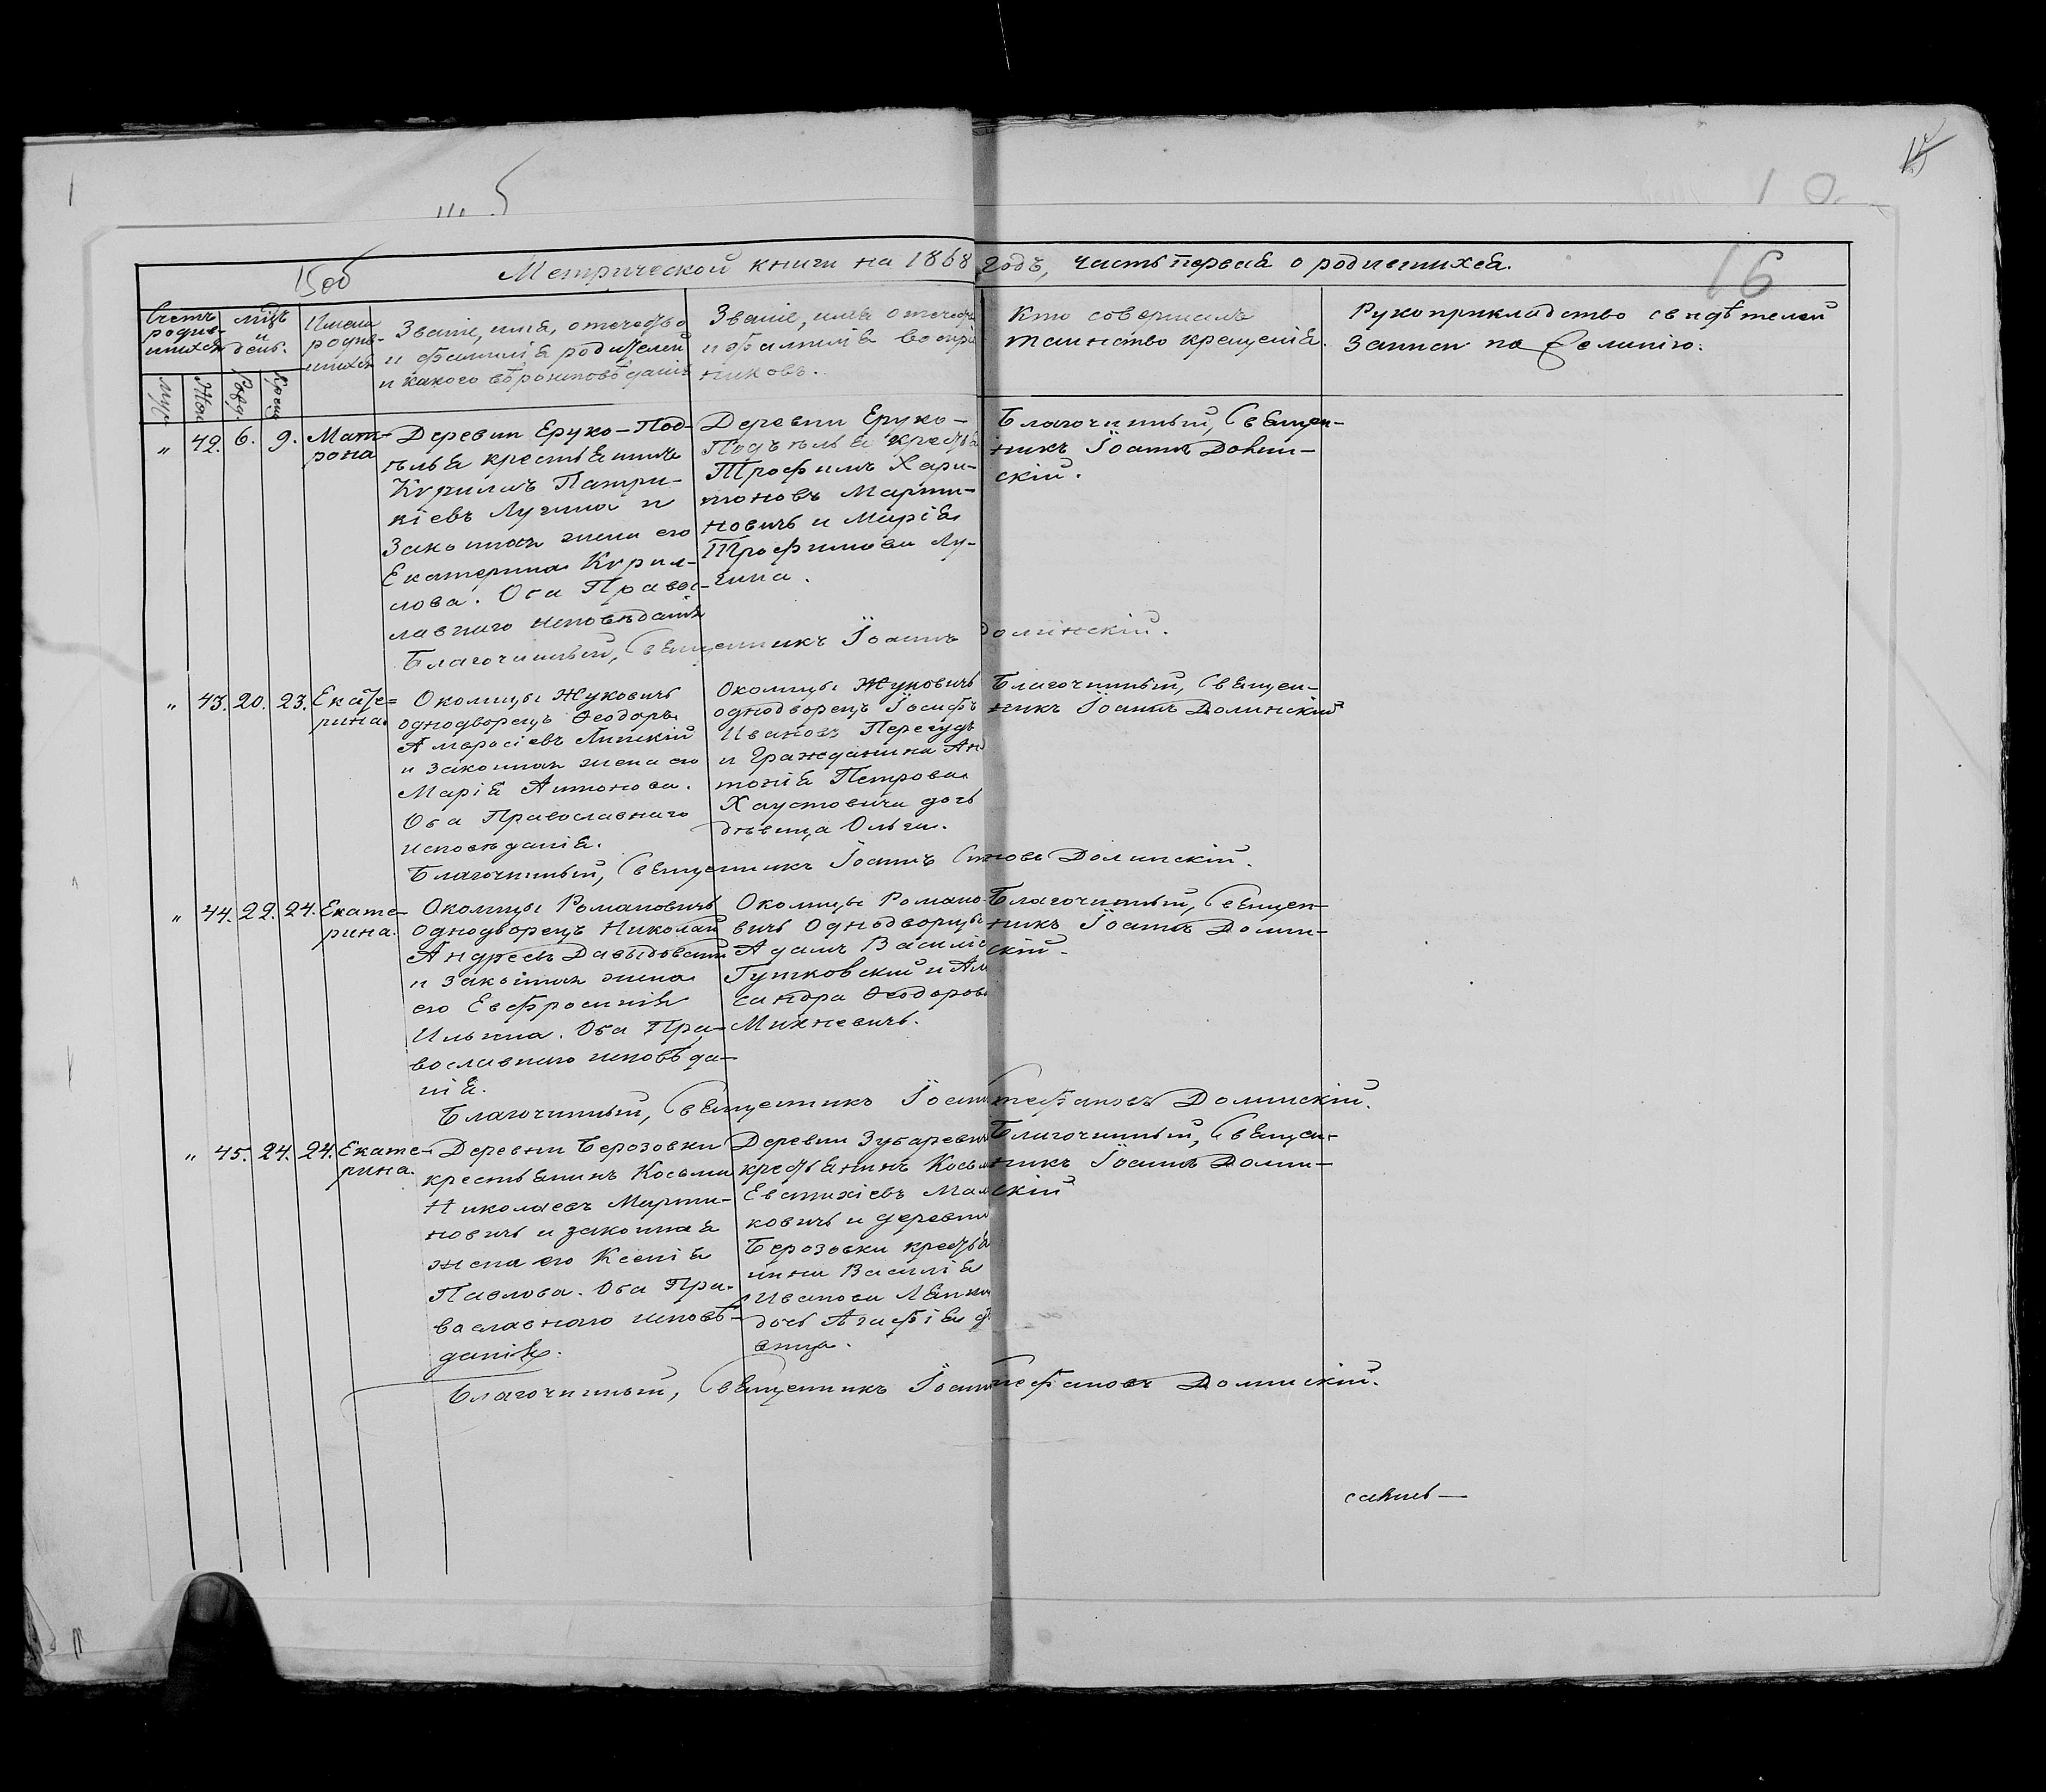 15об
16
Метрической книги на 1868 годъ, часть первая о родившихся.
Счетъ родив-
шихся
мцъ
и
день.
Имена
родив-
шихся
Званіе, имя, отечество
и фамилія родителей
и какого вѣроисповѣданія
Званіе, имя отечест
и фамилія воспріе
никовъ.
Кто совершалъ
таинство крещенія.
Рукоприкладство свидѣтелей
записи по желанію.
Муж
Жен
Рожд.
Крещ
" 42. 6. 9. Мат-
рона
Деревни Еруко-Под-
ѣлья крестьянинъ
Кѵриллъ Патри-
кіевъ Лучина и
законная жена его
Екатерина Кѵрил-
лова. Оба Правос-
лавнаго исповѣданія
Деревни Еруко-
Подѣлья крестья
Трофимъ Хари-
тоновъ Марти-
новичъ и Марія
Трофимова Лу-
чина.
Благочинный, Священ-
никъ Іоаннъ Долин-
скій.
Благочинный, Священникъ Іоаннъ Долинскій.
" 43. 20. 23. Екате=
рина.
Околицы Жуковичъ
однодворецъ Ѳеодоръ
Амвросіевъ Липскій
и законная жена его
Марія Антонова.
Оба Православнаго
исповѣданія.
Околицы Жуковичъ
однодворецъ Іосифъ
Ивановъ Перегудъ
и гражданина Ан
тонія Петрова
Хаустовича дочь
дѣвица Ольга.
Благочинный, Священ-
никъ Іоаннъ Долинскій
Благочинный, Священникъ Іоаннъ Долинскій.
" 44. 22. 24. Екате-
рина.
Околицы Романовичъ
однодворецъ Николай
Андреевъ
и законная жена
его Евфросинія
Ильина. Оба Пра-
вославнаго исповѣда-
нія.
Околицы Романо
вичъ Однодворцы
Адамъ Василіе
Гутковскій и Ал
сандра Ѳеодоров
Михневичъ.
Благочинный, Священ-
никъ Іоаннъ Долин-
скій.
Благочинный, Священникъ Іоаннъ Стефановъ Долинскій.
" 45. 24. 24. Екате-
рина.
Деревни Березовки
крестьянинъ Косьма
Николаевъ Марти-
новичъ и законная
жена его Ксенія
Павлова. Оба Пра-
вославнаго исповѣ-
данія.
Деревни Зубаревич
крестьянинъ Косьм
Евтихіевъ
ковичъ и деревни
Березовки крестья
нина Василія
Иванова
дочь Агафія дѣ
вица.
Благочинный, Священ-
никъ Іоаннъ Долин-
скій
Благочинный, Священникъ Іоаннъ Стефановъ Долинскій.